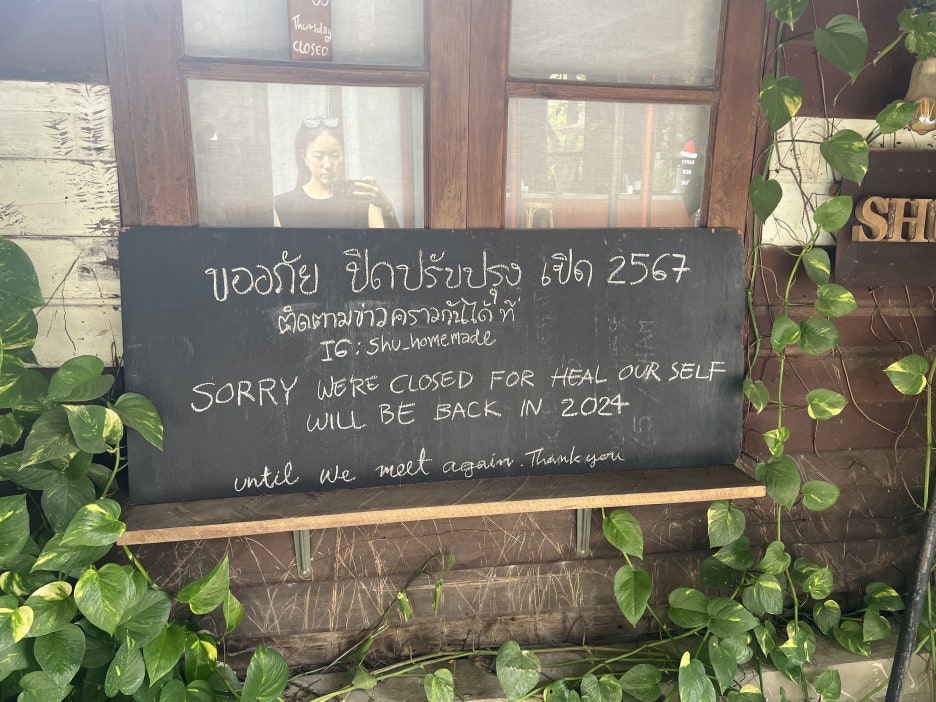 Thursday
CLOSED
HAPPY
NEW
SHU
ขออภัย ปิดปรับปรุง เปิด 2567
ติดตามข่าวคราวกันได้ ที่
IG : Shu_homemade
SORRY WE'RE CLOSED FOR HEAL OUR SELF
WILL BE BACK IN 2024
until we meet again. Thank you